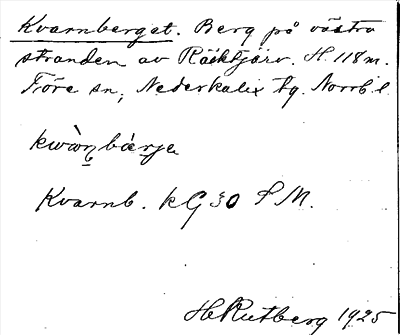 Kvarnberget. Berg på västra
stranden av Räktjärv. H. 118 m.
Töre sn, Nederkalix tg. Norrb. l.
kwàn̥bær̀je
Kvarnb. kG 30 S M.
H Rutberg 1925